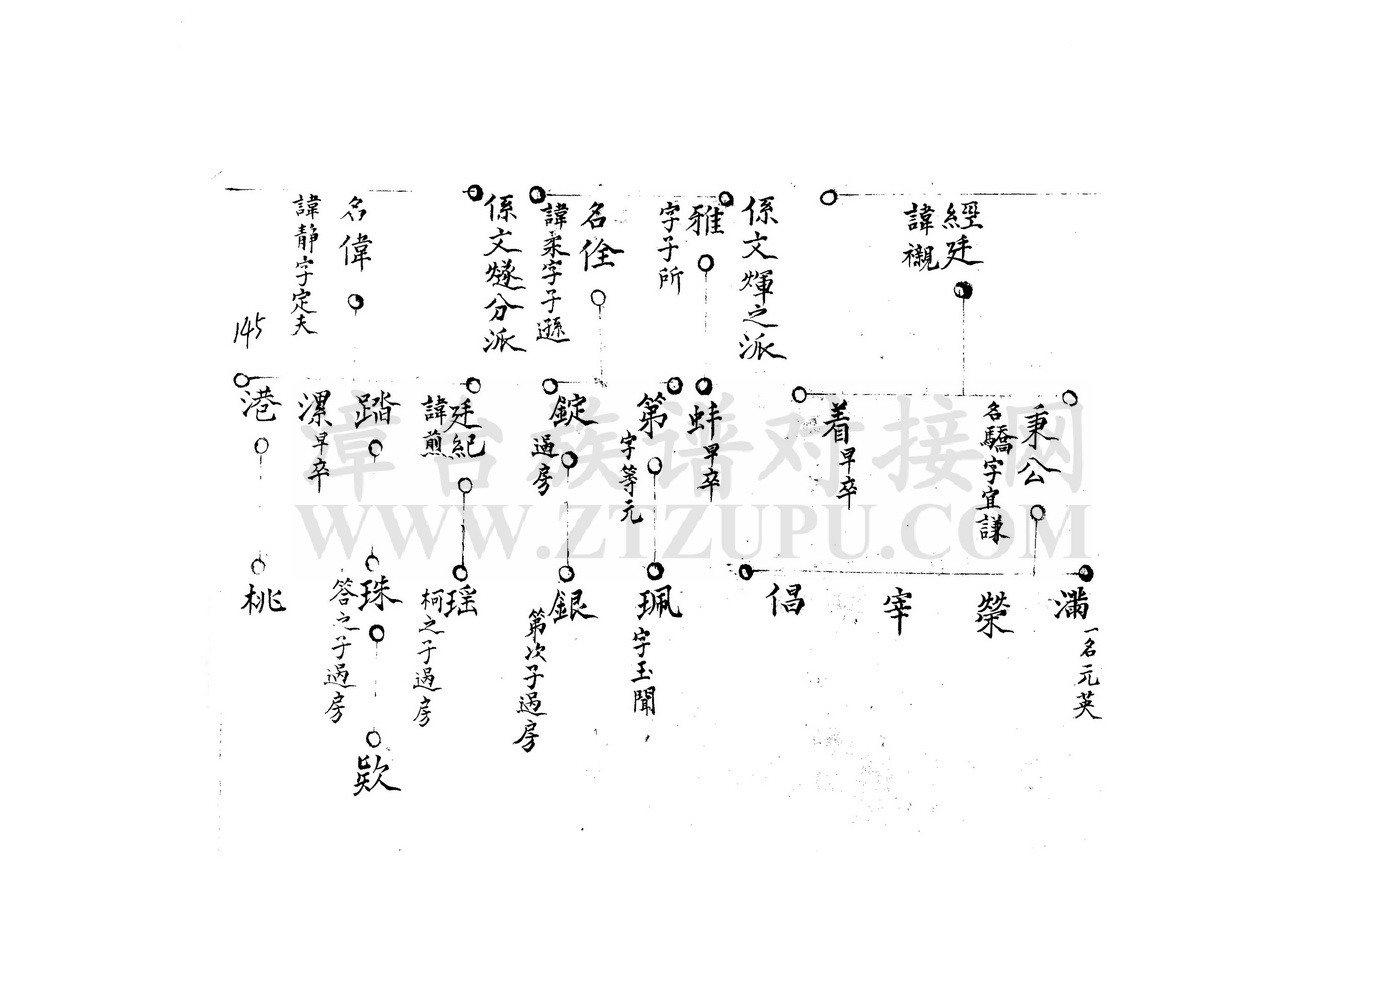 經廷
諱襯
係文煇之派
雅
字子所
名佺
諱柔字子遜
係文燧分派
名偉
諱靜字定夫
145
秉公
名驕字宜謙
着早卒
蚌早卒
第
字等元
錠
過房
廷紀
諱煎
踏
漯早卒
港
章台族谱对接网
WWW.ZTZUPU.COM
滿
一名元英
榮
宰
倡
珮
字玉聞
銀
第次子過房
瑶
柯之子過房
珠
答之子過房
桃
欵